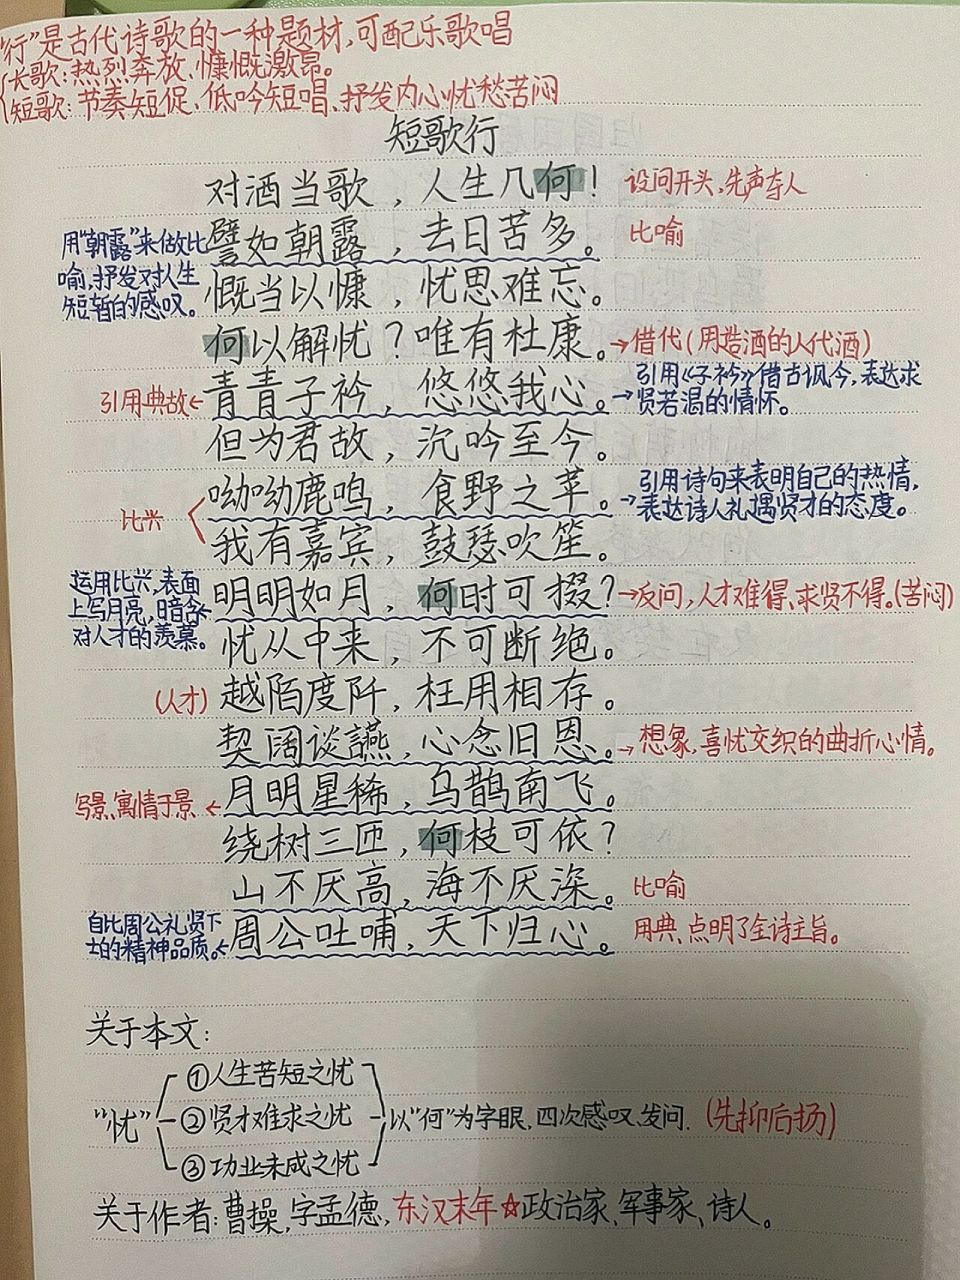 "行"是古代诗歌的一种题材,可配乐歌唱
长歌:热烈奔放、慷慨激昂。
短歌:节奏短促、低吟短唱、抒发内心忧愁苦闷
短歌行
对酒当歌,人生几何! 设问开头,先声夺人
用"朝露"来做比
喻,抒发对人生
短暂的感叹。
譬如朝露,去日苦多。 比喻
慨当以慷,忧思难忘。
何以解忧?唯有杜康。→借代(用造酒的人代酒)
引用典故←青青子衿,悠悠我心。→引用《子衿》借古讽今,表达求
贤若渴的情怀。
但为君故,沉吟至今。
比兴
呦呦鹿鸣,食野之苹。→引用诗句来表明自己的热情,
表达诗人礼遇贤才的态度。
我有嘉宾,鼓瑟吹笙。
运用比兴,表面
上写月亮,暗含
对人才的羡慕。
明明如月,何时可掇?→反问,人才难得、求贤不得。(苦闷)
忧从中来,不可断绝。
(人才)越陌度阡,枉用相存。
契阔谈讌,心念旧恩。→想象,喜忧交织的曲折心情。
写景、寓情于景←月明星稀,乌鹊南飞。
绕树三匝,何枝可依?
山不厌高,海不厌深。 比喻
自比周公礼贤下
士的精神品质。←周公吐哺,天下归心。 用典、点明了全诗主旨。
关于本文:
"忧"
①人生苦短之忧
②贤才难求之忧
③功业未成之忧
以"何"为字眼,四次感叹、发问. (先抑后扬)
关于作者:曹操,字孟德,东汉末年☆政治家、军事家、诗人。